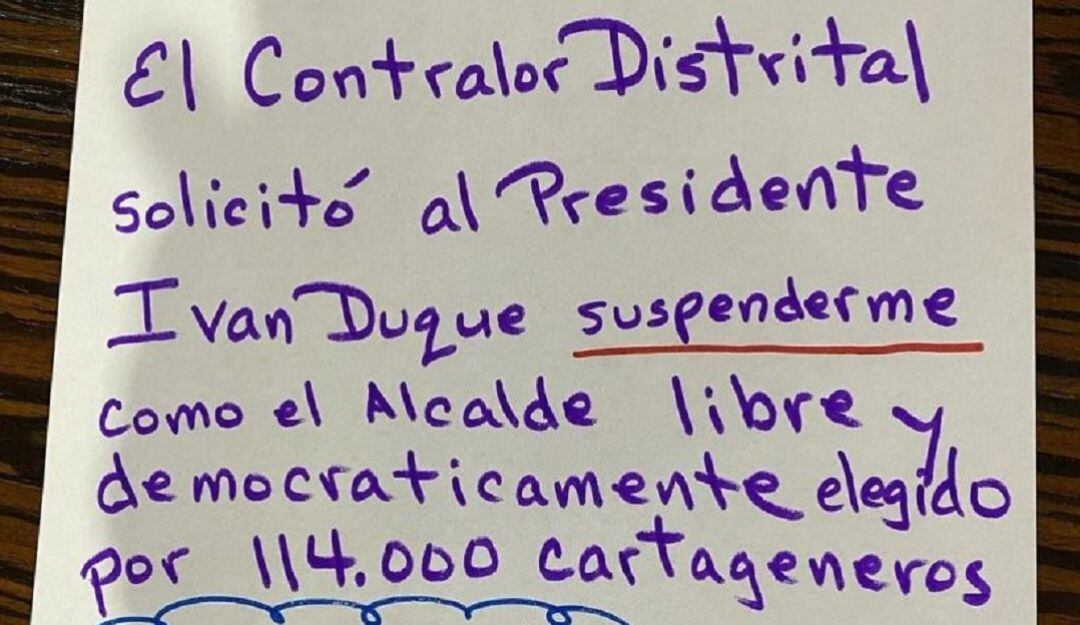 El Contralor Distrital
solicitó al Presidente
Ivan Duque suspenderme
como el Alcalde libre y
democraticamente elegido
por 114.000 cartageneros